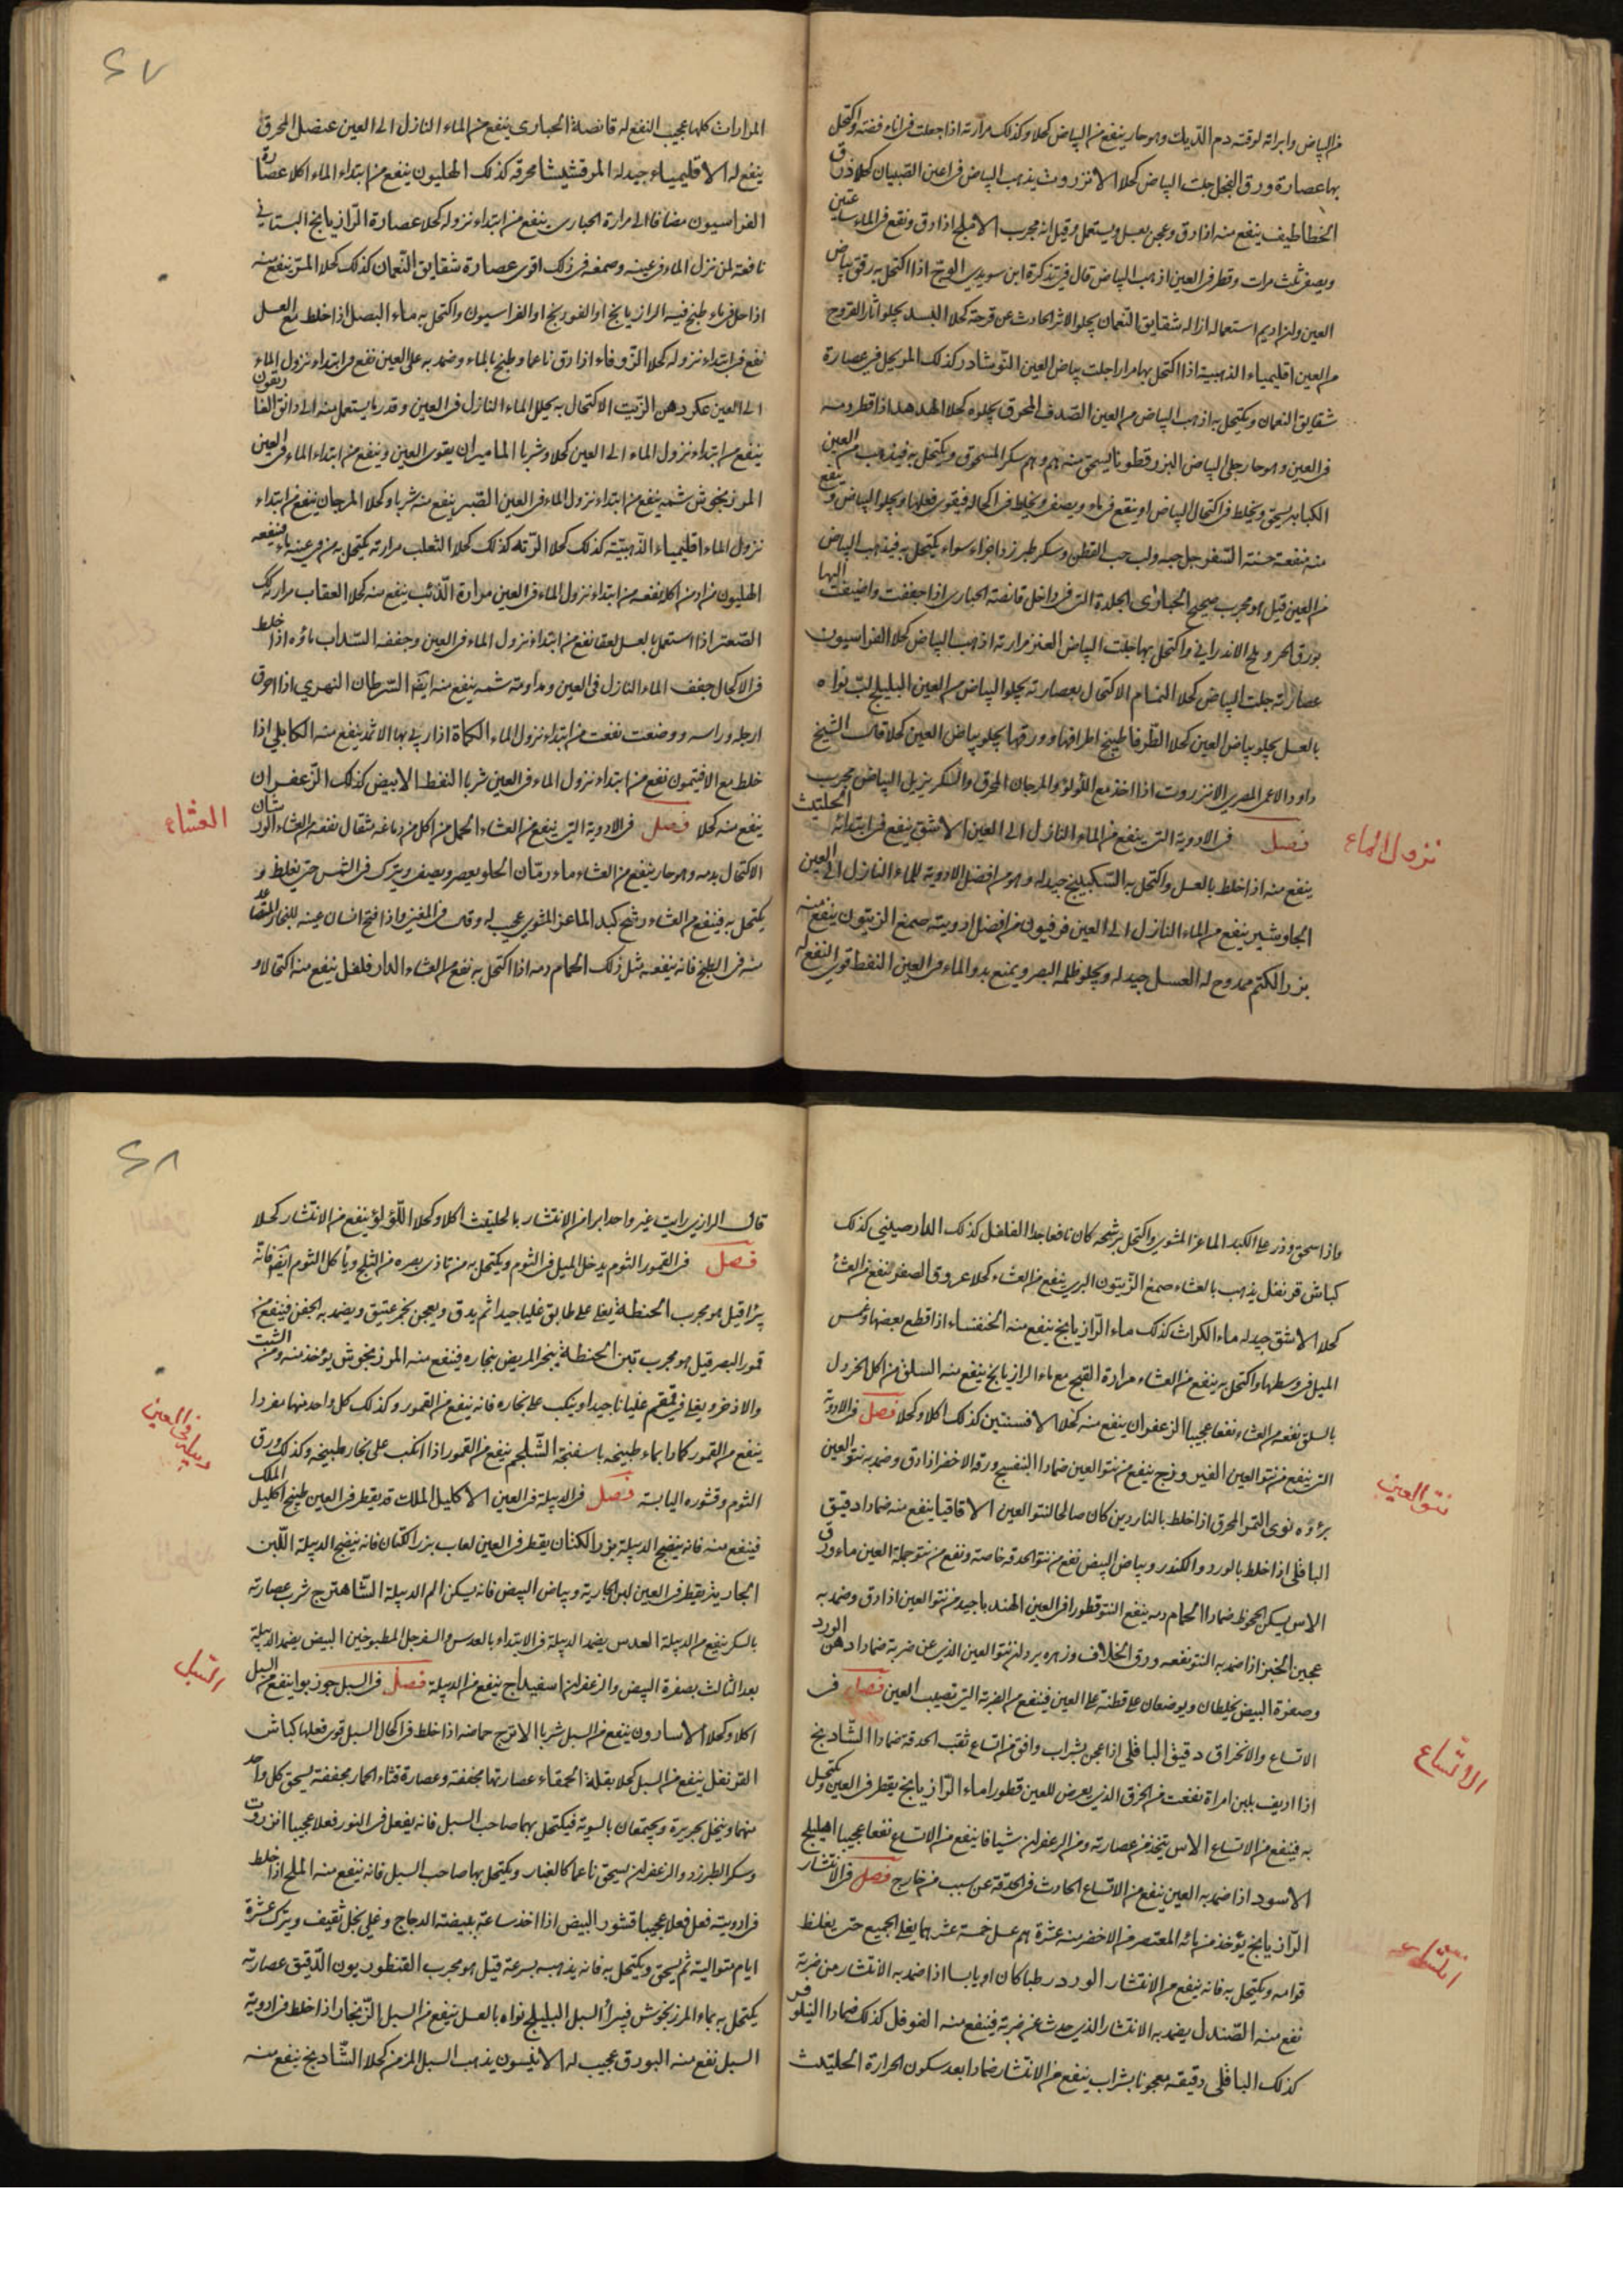 من البياض وابراته لوقته دم الديك وهو حار ينفع من البياض كحلا وكذلك مرارته اذا جعلت في اناء فضه واكتحل
بها عصارة ورق الفجل جلت البياض كحلا الانزروت يذهب البياض في اعين الصبيان كحلا ذرق
الخطاطيف ينفع منه اذا دق وعجن بعسل ويستعمل وقيل انه مجرب الاملج اذا دق ونقع في الماء ساعتين
ويصفى ثلث مرات وقطر في العين اذهب البياض قال في تذكرة ابن سويدي الوج اذا اكتحل به رقق بياض
العين وان اديم استعماله ازاله شقايق النعمان يجلو الاثر الحادث عن قرحة كحلا السد يجلو اثار القروح
من العين اقليمياء الذهبية اذا اكتحل بها مرارا جلت بياض العين النوشادر كذلك المر يحل في عصارة
شقايق النعمان ويكتحل به اذهب البياض من العين الصدف المحرق يجلوه كحلا الهدهد اذا قطر دمه
في العين وهو حار جلى البياض البزرقطونا يسحق منه درهم ودرهم سكر المسحوق ويكتحل به فيذهب من العين
الكبابه يسحق ويخلط في اكحال البياض او ينقع في ماء ويصفى ويخلط في اكحاله فيقوى فعلها ويجلو البياض وينفع
منه منفعة حسنة السفرجل حبه ولب حب القطن وسكر طبرزد اجزاء سواء يكتحل به فيذهب البياض
من العين قيل هو مجرب صحيح الحبارى الجلدة التي في داخل قانصة الحبارى اذا جففت واضيفت اليها
بورق احمر وملح الاندراني واكتحل بها جلت البياض العنز مرارته اذهب البياض كحلا الفراسيون
عصارته جلت البياض كحلا النمام الاكتحال بعصارته يجلو البياض من العين البليلج لب نواه
بالعسل يجلو بياض العين كحلا الطرفا طبيخ اطرافها وورقها يجلو بياض العين كحلا قال الشيخ
داود الاعمى المصري الانزروت اذا اخذ مع اللؤلؤ والمرجان المحرق والسكر يزيل البياض مجرب
نزول الماء
فصل في الادوية التي ينفع من الماء النازل الى العين الاشق ينفع في ابتدائه الحلتيت
ينفع منه اذا خلط بالعسل واكتحل به السكبينج جيد له وهو من افضل الادوية للماء النازل الى العين
الجاوشير ينفع من الماء النازل الى العين فرفيون من افضل ادويته صمغ الزيتون ينفع منه
بزر الكتم ممدوح له العسل جيد له ويجلو ظلمه البصر ويمنع بدو الماء في العين النفط قوي النفع له
المرارات كلها عجيب النفع له قانصة الحبارى ينفع من الماء النازل الى العين عنصل المحرق
ينفع له الاقليمياء جيد له المرقشيشا محرقه كذلك الهليون ينفع من ابتداء الماء اكلا عصارة
الفراسيون مضافا الى مرارة الحبارى ينفع من ابتداء نزوله كحلا عصارة الرازيانج البستاني
نافعة لمن نزل الماء في عينه وصمغه في ذلك اقوى عصارة شقايق النعمان كذلك كحلا المر ينفع منه
اذا حل في ماء طبخ فيه الرازيانج او الفوذنج او الفراسيون واكتحل به ماء البصل اذا خلط مع العسل
نفع في ابتداء نزوله كحلا الزوفاء اذا دق ناعما وطبخ بالماء وضمد به على العين نفع في ابتداء نزول الماء
الى العين عكر دهن الزيت الاكتحال به يحلل الماء النازل في العين وقدر ما يستعمل منه الى دانق
ينفع من ابتداء نزول الماء الى العين كحلا وشربا الماميران يقوى العين وينفع من ابتداء الماء في العين
المرزنجوش شمه ينفع من ابتداء نزول الماء في العين الصبر ينفع منه شربا وكحلا المرجان ينفع من ابتداء
نزول الماء اقليمياء الذهبية كذلك كحلا الرته كذلك كحلا الثعلب مرارته يكتحل به من في عينه ماء فينفعه
الهليون من ادمن اكله نفعه من ابتداء نزول الماء في العين مرارة الذئب ينفع منه كحلا العقاب مرارته كذلك
الصعتر اذا استعمل بالعسل لعقا نفع من ابتداء نزول الماء في العين وجففه السداب ماؤه اذا خلط
في الاكحال جفف الماء النازل في العين ومداومة شمه ينفع منه ايضا السرطان النهري اذا احرق
ارجله وراسه ووضعت نفعت من ابتداء نزول الماء الكماة اذا ربى بها الاثمد ينفع منه الكابلي اذا
خلط مع الافتيمون نفع من ابتداء نزول الماء في العين شربا النفط الابيض كذلك الزعفران
العشاء
ينفع منه كحلا فصل في الادوية التي ينفع من العشاء الحمل من اكل من دماغه مثقال نفعه من العشاء الورشان
الاكتحال بدمه وهو حار ينفع من العشاء ماء رمان الحلو يعصر ويصفى ويترك في الشمس حتى يغلظ و
يكتحل به فينفع من العشاء رشح كبد الماعز المشوي عجيب له وقال في المغني واذا فتح انسان عينه للبخار المتصاعد
منه في الطبخ فانه ينفعه مثل ذلك الحمام دمه اذا اكتحل به نفع من العشاء الدار فلفل ينفع منه اكتحالا و
واذا سحق وذر على الكبد الماعز المشوي واكتحل برشحه كان نافعا جدا الفلفل كذلك الدارصيني كذلك
كباش قرنفل يذهب بالعشاء صمغ الزيتون البري ينفع من العشاء كحلا عروق الصفر ينفع من العشاء
كحلا الاشق جيد له ماء الكراث كذلك ماء الرازيانج ينفع منه الخنفساء اذا قطع بعضها وغمس
الميل في وسطها واكتحل به ينفع من العشاء مرارة القبج مع ماء الرازيانج ينفع منه السلق من اكل الخردل
بالسلق نفعه من العشاء نفعا عجيبا الزعفران ينفع منه كحلا الافسنتين كذلك اكلا وكحلا فصل في الادوية
نتو العين
التي ينفع من نتو العين الفيروزج ينفع من نتو العين ضمادا البنفسج ورقه الاخضر اذا دق وضمد به نتو العين
برؤه نوى التمر المحرق اذا خلط بالناردين كان صالحا لنتو العين الاقاقيا ينفع منه ضمادا دقيق
الباقلى اذا خلط بالورد والكندر وبياض البيض نفع من نتو الحدقه خاصة ونفع من نتو جملة العين ماء ورق
الاس يسكن الجحوظ ضمادا الحمام دمه ينفع النتو قطورا في العين الهندباء جيد من نتو العين اذا دق وضمد به
عجين الخبز اذا ضمد به النتو نفعه ورق الخلاف وزهره يرد ان نتو العين الذي عن ضربة ضمادا دهن الورد
وصفرة البيض يخلطان ويوضعان على قطنه على العين فينفع من الضربة التي تصيب العين فصل في
الاتساع
الاتساع والانخراق دقيق الباقلى اذا عجن بشراب وافق من اتساع ثقب الحدقة ضمادا الشادنج
اذا اديف بلبن امراة نفعت من الخرق الذي يعرض للعين قطورا ماء الرازيانج يقطر في العين ويكتحل
به فينفع من الاتساع الاس يتخذ من عصارته ومن الزعفران شيافا ينفع من الاتساع نفعا عجيبا اهليلج
الاسود اذا ضمد به العين ينفع من الاتساع الحادث في الحدقة عن سبب من خارج فصل في الانتشار
انتشار
الرازيانج يؤخذ من مائه المعتصر من الاخضر منه عشرة درهم عسل خمسة عشر درهما يغلى الجميع حتى يغلظ
قوامه ويكتحل به فانه ينفع من الانتشار الورد رطبا كان او يابسا اذا ضمد به الانتشار من ضربة
نفع منه الصندل يضمد به الانتشار الذي حدث عن ضربة فينفع منه الفوفل كذلك ضمادا النيلوفر
كذلك الباقلى دقيقه معجونا بشراب ينفع من الانتشار ضمادا بعد سكون الحرارة الحلتيت
قال الرازي رايت غير واحد ابرا من الانتشار بالحلتيت اكلا وكحلا اللؤلؤ ينفع من الانتشار كحلا
فصل في القمور الثوم يدخل الميل في الثوم ويكتحل به من تاذى بصره من الثلج وياكل الثوم ايضا فانه
يبرا قيل هو مجرب الحنطة يغلى على طابق غليا جيدا ثم يدق ويعجن بخمر عتيق ويضمد به الجفن فينفع من
قمور البصر قيل هو مجرب تبن الحنطة يبخر المريض ببخاره فينفع منه المرزنجوش يؤخذ منه ومن الشبت
والاذخر ويغلى في قمقم غليانا جيدا وينكب على بخاره فانه ينفع من القمور وكذلك كل واحد منها مفردا
ينفع من القمور كمادا بماء طبيخه باسفنجة الشلجم ينفع من القمور اذا انكب على بخار طبيخه وكذلك ورق
دبيلة في العين
الثوم وقشوره اليابسة فصل في الدبيلة في العين الاكليل الملك قد يقطر في العين طبيخ اكليل الملك
فينفع منه فانه ينضج الدبيلة بزر الكتان يقطر في العين لعاب بزر الكتان فانه ينضج الدبيلة اللبن
الجارية يقطر في العين لبن الجارية وبياض البيض فانه يسكن الم الدبيلة الشاهترج شرب عصارته
بالسكر ينفع من الدبيلة العدس يضمد الدبيلة في الابتداء بالعدس والسفرجل المطبوخين البيض يضمد الدبيلة
السبل
بعد الثالث بصفرة البيض والزعفران اسفيداج ينفع من الدبيلة فصل في السبل جوز بوا ينفع من السبل
اكلا وكحلا الاسارون ينفع من السبل شربا الاترج حماضه اذا خلط في اكحال السبل قوى فعلها كباش
القرنفل ينفع من السبل كحلا بقلة الحمقاء عصارتها مجففة وعصارة قثاء الحمار مجففة يسحق كل واحد
منهما وينخل بحريرة ويجمعان بالسوية فيكتحل بهما صاحب السبل فانه يفعل في النور فعلا عجيبا انزروت
وسكر الطبرزد والزعفران يسحق ناعما كالغبار ويكتحل بها صاحب السبل فانه ينفع منه الملح اذا خلط
في ادويته فعل فعلا عجيبا قشور البيض اذا اخذ ساعة يبيضه الدجاج وغلي بخل ثقيف ويترك عشرة
ايام متوالية ثم يسحق ويكتحل به فانه يذهبه بسرعة قيل هو مجرب القنطوريون الدقيق عصارته
يكتحل به بماء المرزنجوش فيبرا السبل البليلج نواه بالعسل ينفع من السبل الزنجار اذا خلط في ادوية
السبل نفع منه البورق عجيب له الانيسون يذهب السبل المزمن كحلا الشادنج ينفع منه